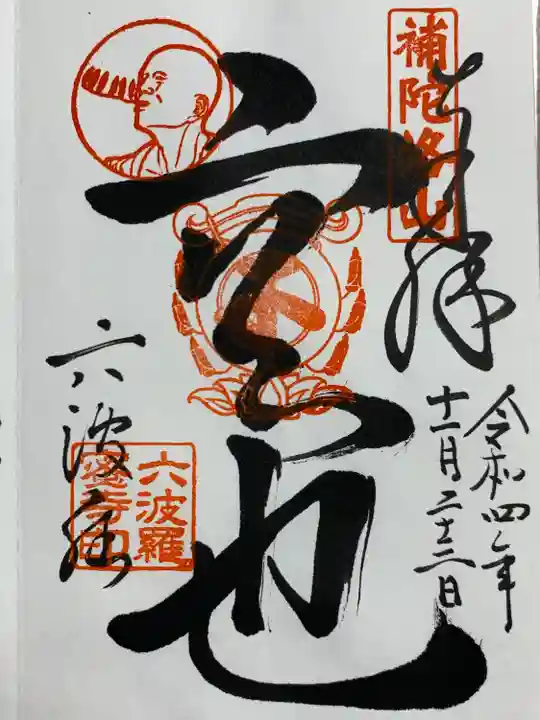 補陀洛山
奉拝
令和四年
十一月二十三日
空也
六波羅
六波羅
蜜寺印